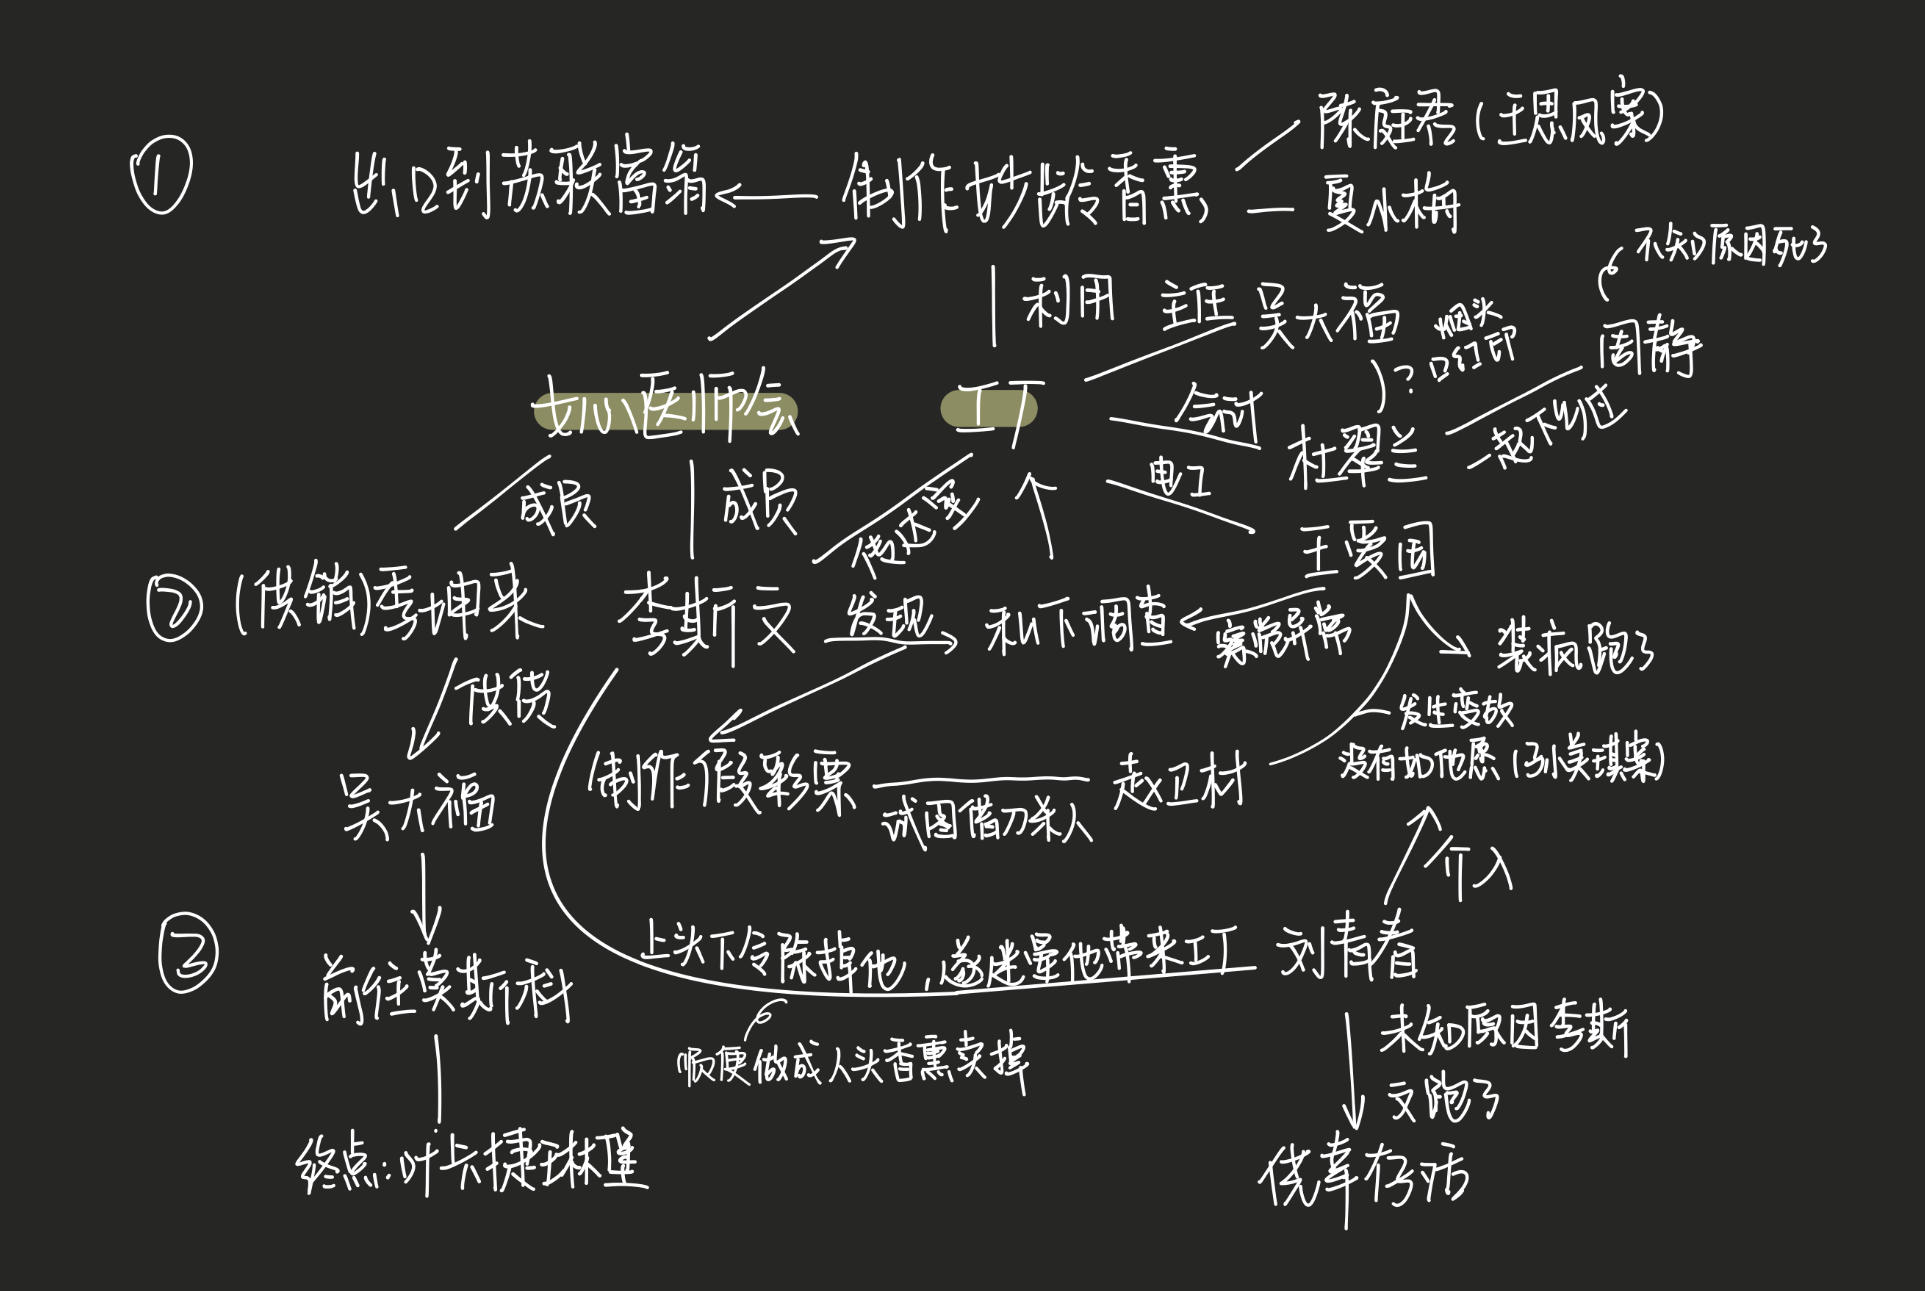 ①
出口到苏联富翁
制作妙龄香熏
陈庭君(王思凤案)
夏小梅
不知原因死了
利用
主任
吴大福
烟头
口红印
?
周静
女心医师会
工厂
会计
杜翠兰
一起下乡过
成员
成员
传达室
电工
王爱国
②
(供销)季坤来
李斯文
发现
私下调查
察觉异常
装病跑了
供货
发生变故
没有如他愿(孙美琪案)
吴大福
制作假彩票
试图借刀杀人
赵卫材
介入
③
前往莫斯科
上头下令除掉他,遂迷晕他带来工厂
刘青春
顺便做成人头香熏卖掉
未知原因李斯
文跑了
终点:叶卡捷琳堡
侥幸存活